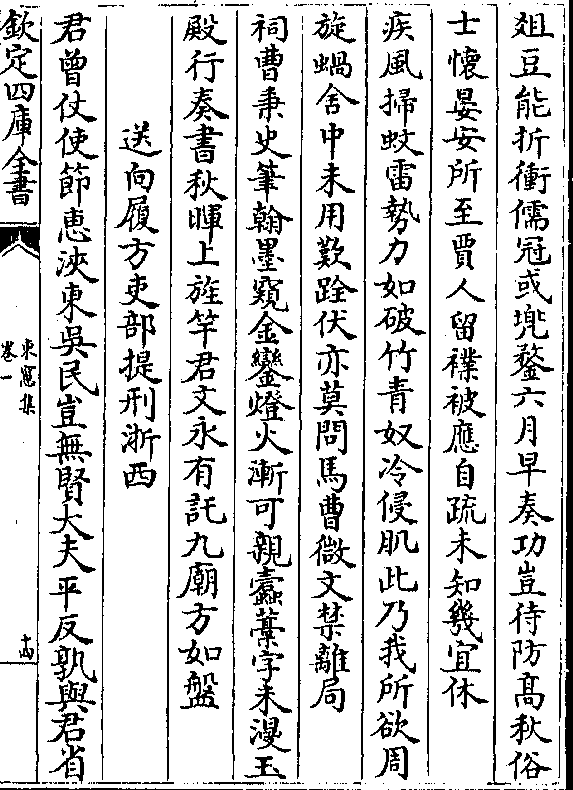 俎豆能折衝儒冠或兜鍪六月早奏功豈待防髙秋俗
士懷晏安所至賈人留襆被應自疏未知幾宜休
疾風掃蚊雷勢力如破竹青奴冷侵肌此乃我所欲周
旋蝸舍中未用歎跧伏亦莫問馬曹微文禁離局
祠曹秉史筆翰墨窺金鑾燈火漸可親蠹藁字未漫玉
殿行奏書秋暉上旌竿君文永有託九廟方如盤
送向履方吏部提刑浙西
君曾仗使節恵浹東吳民豈無賢大夫平反孰與君省
欽定四庫全書
東窓集
卷一
十六